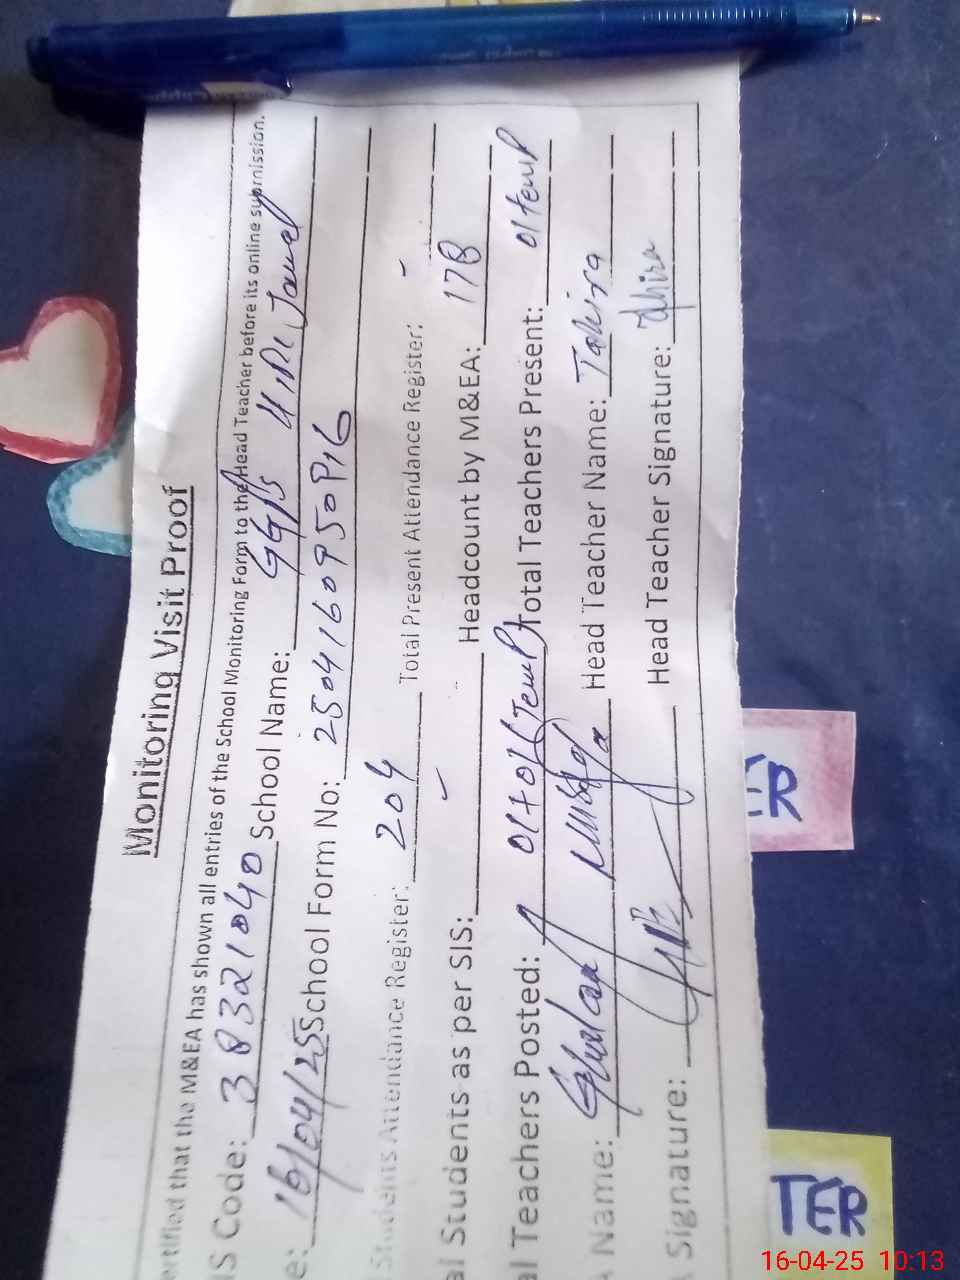 Monitoring Visit Proof
ertified that the M&EA has shown all entries of the School Monitoring Form to the Head Teacher before its online submission.
IS Code: 38321040 School Name: GGPS
e: 16/04/25 School Form No: 250416095
Students Attendance Register: 204 Total Present Attendance Register: -
al Students as per SIS: - Headcount by M&EA: 178
al Teachers Posted: 01+01(Temp) Total Teachers Present: 01 temp
A Name: Ghulam Head Teacher Name: Tahira
Signature: Head Teacher Signature: Tahira
ER
TER
16-04-25 10:13